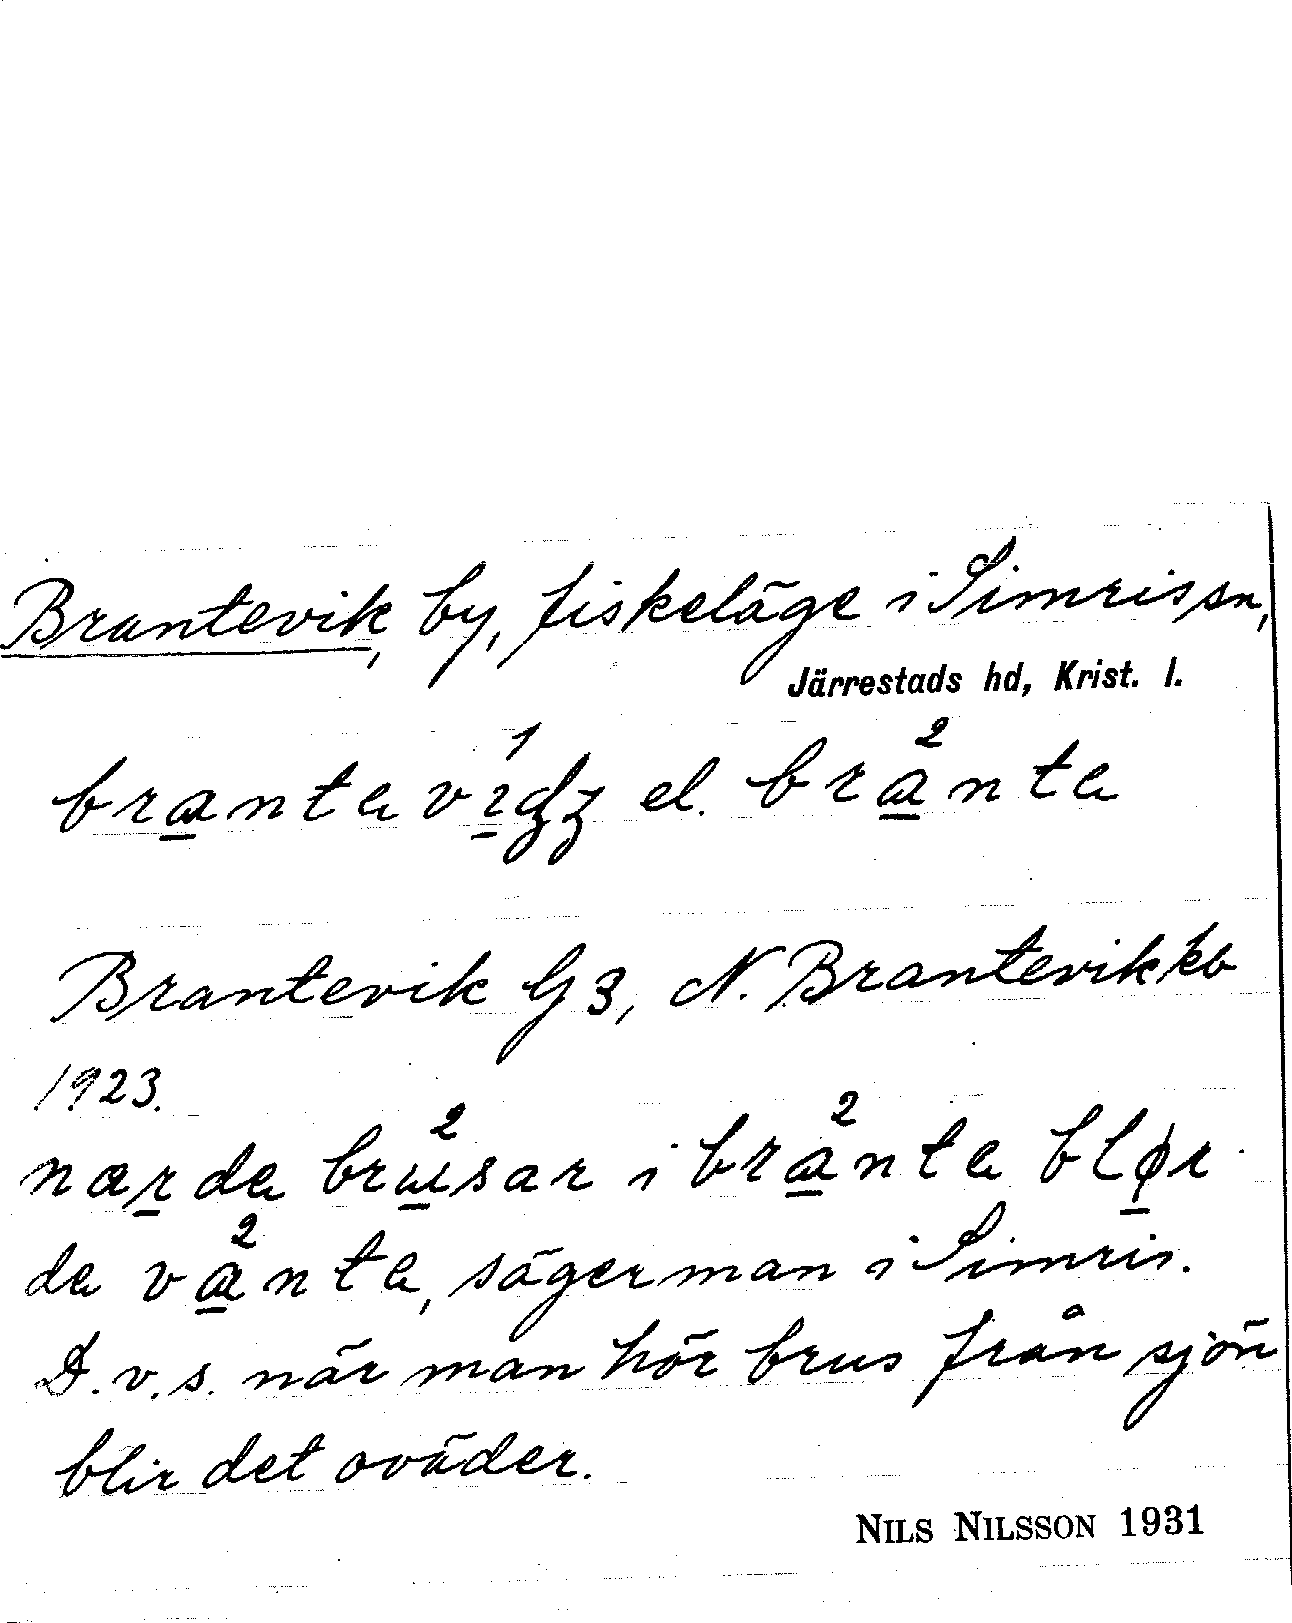 Brantevik, by, fiskeläge i Simris sn,
Järrestads hd, Krist. l.
branta vi¹ʤʒ el. bra²nta
Brantevik G 3, N. Brantevik kb
1923.
nær da bru²sar i bra²nta bløɪ
da va²nta, säger man i Simris.
D.v.s. när man hör brus från sjön
blir det oväder.
NILS NILSSON 1931